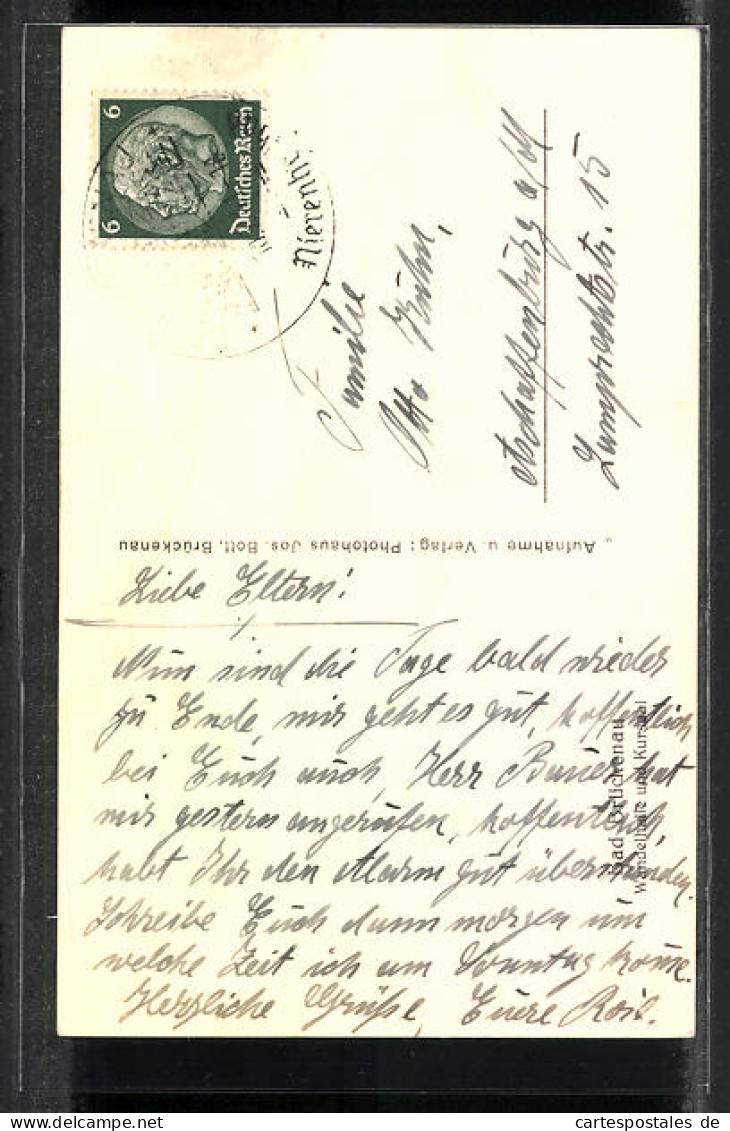 6
6
Deutsches Reich
Familie
Otto Kühn,
Aschaffenburg a/M
Lamprechtstr. 15
Aufnahme u. Verlag: Photohaus Jos. Bott, Brückenau
Bad Brückenau
Wandelhalle und Kursaal
Liebe Eltern!
Nun sind die Tage bald wieder
zu Ende, mir geht es gut, hoffentlich
bei Euch auch, Herr Bauer hat
mir gestern angerufen, hoffentlich
habt Ihr den Alarm gut überstanden.
Schreibe Euch dann morgen um
welche Zeit ich am Sonntag komme.
Herzliche Grüße, Eure
www.cartespostales.de
cartespostales de